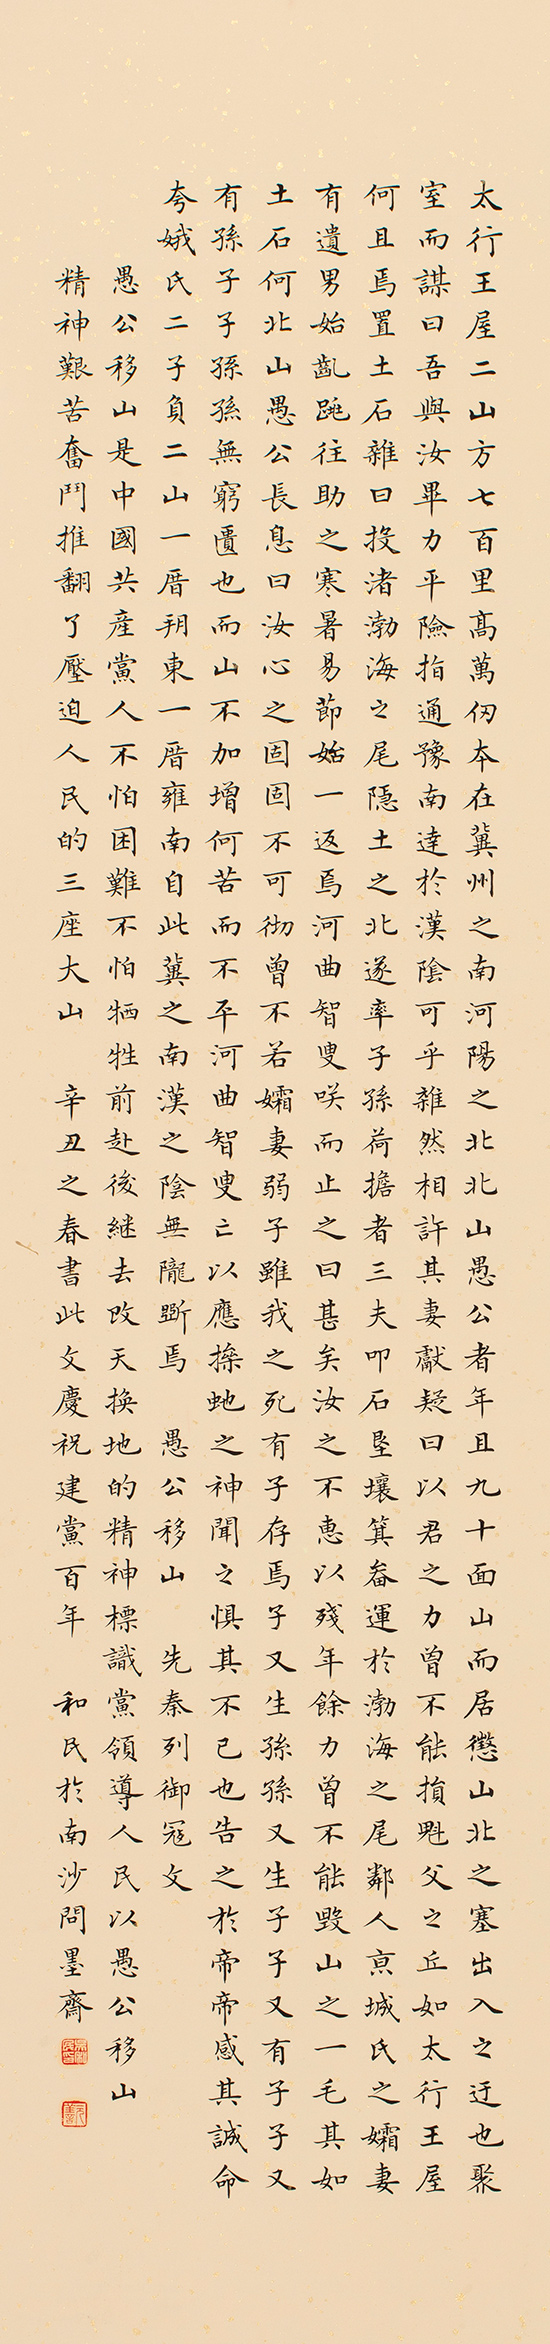 太行王屋二山方七百里高萬仞本在冀州之南河陽之北北山愚公者年且九十面山而居懲山北之塞出入之迂也聚
室而謀曰吾與汝畢力平險指通豫南達於漢陰可乎雜然相許其妻獻疑曰以君之力曾不能損魁父之丘如太行王屋
何且焉置土石雜曰投渚渤海之尾隱土之北遂率子孫荷擔者三夫叩石墾壤箕畚運於渤海之尾鄰人京城氏之孀妻
有遺男始齔跳往助之寒暑易節始一返焉河曲智叟咲而止之曰甚矣汝之不惠以殘年餘力曾不能毀山之一毛其如
土石何北山愚公長息曰汝心之固固不可彻曾不若孀妻弱子雖我之死有子存焉子又生孫孫又生子子又有子子又
有孫子子孫孫無窮匱也而山不加增何苦而不平河曲智叟亡以應操虵之神聞之惧其不已也告之於帝帝感其誠命
夸娥氏二子負二山一厝朔東一厝雍南自此冀之南漢之陰無隴斷焉 愚公移山 先秦列御冦文
愚公移山是中國共產黨人不怕困難不怕牺牲前赴後継去改天換地的精神標識黨領導人民以愚公移山
精神艱苦奮鬥推翻了壓迫人民的三座大山 辛丑之春書此文慶祝建黨百年 和民於南沙問墨齋